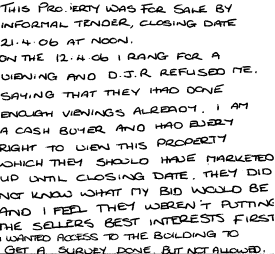 THIS PROPERTY WAS FOR SALE BY
INFORMAL TENDER, CLOSING DATE
21.4.06 AT NOON.
ON THE 12.4.06 I RANG FOR A
VIEWING AND D.J.R REFUSED ME.
SAYING THAT THEY HAD DONE
ENOUGH VIEWINGS ALREADY. I AM
A CASH BUYER AND HAD EVERY
RIGHT TO VIEW THIS PROPERTY
WHICH THEY SHOULD HAVE MARKETED
UP UNTIL CLOSING DATE. THEY DID
NOT KNOW WHAT MY BID WOULD BE
AND I FEEL THEY WEREN'T PUTTING
THE SELLERS BEST INTERESTS FIRST
I WANTED ACCESS TO THE BUILDING TO
GET A SURVEY DONE. BUT NOT ALLOWED.